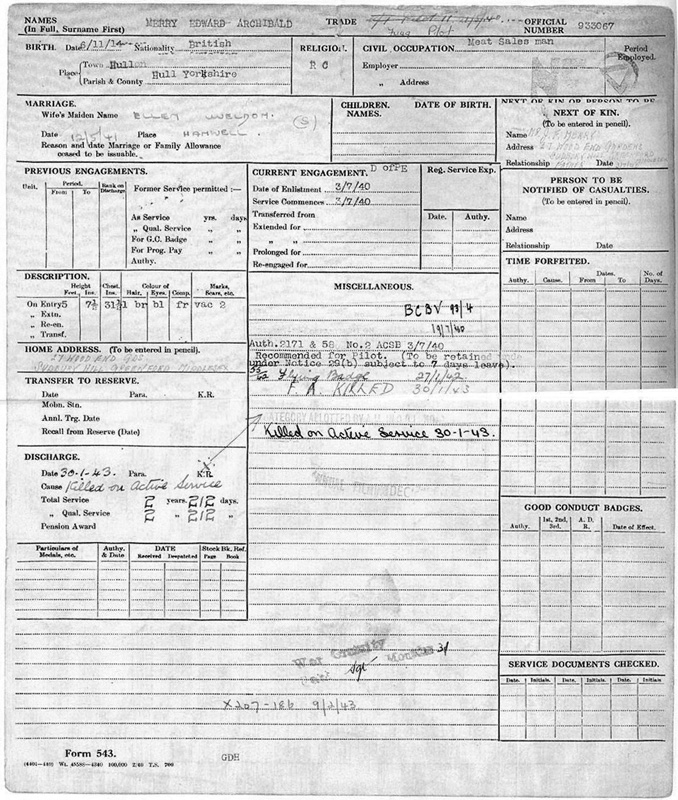 NAMES (In Full, Surname First) MERRY EDWARD ARCHIBALD TRADE Pilot OFFICIAL NUMBER 933067
BIRTH. Date 6/11/14 Nationality British
Place Town Hullon
Parish & County Hull Yorkshire
RELIGION. R C
CIVIL OCCUPATION. Meat Sales man
Employer
„ Address
Period Employed.
MARRIAGE.
Wife's Maiden Name ELLEN (S)
Date 12/5/41 Place HANWELL.
Reason and date Marriage or Family Allowance ceased to be issuable.
CHILDREN. NAMES. DATE OF BIRTH.
NEXT OF KIN OR PERSON TO BE
NEXT OF KIN.
(To be entered in pencil).
Name
Address 27 WOOD END GARDENS
Relationship Date
PREVIOUS ENGAGEMENTS.
Unit. Period. From To Rank on Discharge
Former Service permitted :—
As Service yrs. days
„ Qual. Service „ „
For G.C. Badge „ „
For Prog. Pay „ „
Authy.
CURRENT ENGAGEMENT. D of PE
Date of Enlistment 3/7/40
Service Commences 3/7/40
Transferred from
Extended for
„ „
Prolonged for
Re-engaged for
Reg. Service Exp.
Date. Authy.
PERSON TO BE NOTIFIED OF CASUALTIES.
(To be entered in pencil).
Name
Address
Relationship Date
TIME FORFEITED.
Authy. Cause. Dates. From To No. of Days.
DESCRIPTION.
Height Feet, Ins. Chest, Ins. Colour of Hair, Eyes, Comp. Marks, Scars, etc.
On Entry 5 7½ 31½ br bl fr vac 2
„ Extn.
„ Re-en.
„ Transf.
MISCELLANEOUS.
BCBV 93/4
19/7/40
Auth.2171 & 58 No.2 ACSB 3/7/40
Recommended for Pilot. (To be retained
under Notice 29(b) subject to 7 days leave).
Flying Badge 27/1/42
F. A. KILLED 30/1/43
Killed on Active Service 30-1-43.
HOME ADDRESS. (To be entered in pencil).
27 WOOD END GDS
TRANSFER TO RESERVE.
Date Para. K.R.
Mobn. Stn.
Annl. Trg. Date
Recall from Reserve (Date)
DISCHARGE.
Date 30-1-43. Para. K.R.
Cause Killed on Active Service
Total Service 2 years. 212 days.
„ Qual. Service 2 „ 212 „
Pension Award
Particulars of Medals, etc. Authy. & Date DATE Received Despatched Stock Bk. Ref. Page Book
GOOD CONDUCT BADGES.
Authy. 1st, 2nd, 3rd. A. D. R. Date of Effect.
War Gratuity
Sgt Months 31
X207-186 9/2/43
SERVICE DOCUMENTS CHECKED.
Date. Initials. Date. Initials. Date. Initials
Form 543.
GDH